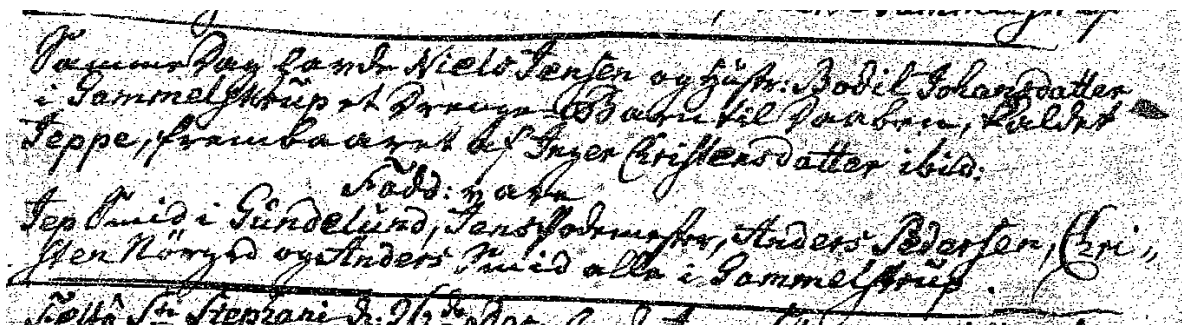 Samme Dag havde Niels Jensen og Hüstr: Bodil Johansdatter
i Gammelstrŭp et Drenge-Barn til Daaben, kaldet
Jeppe, frembaaret af Inger Christensdatter ibid:
Fadd: vare
Jep Smid i Gŭndelŭnd, Jens Pademester, Anders Pedersen, Chri„
sten Nörgrd og Anders Smid alle i Gammelstrŭp.
Festô Sti Stephani d: 26de